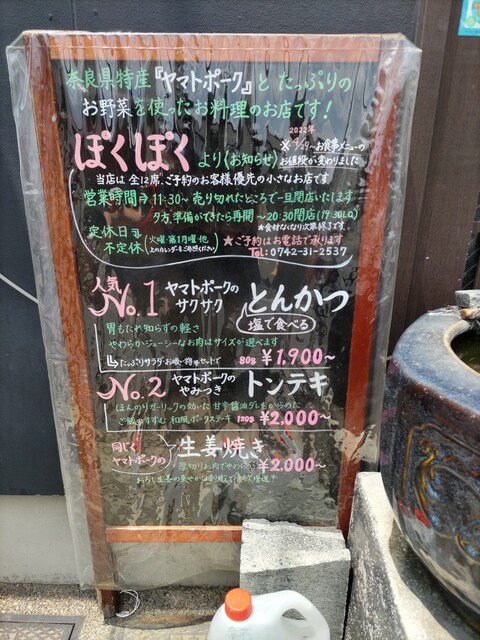 奈良県特産『ヤマトポーク』と たっぷりの
お野菜を使ったお料理のお店です!
ぽくぽく より〈お知らせ〉
2022年
お食事メニューの
お値段が変わりました
当店は 全12席、ご予約のお客様優先の小さなお店です
営業時間→11:30~売り切れたところで一旦閉店いたします
夕方、準備ができたら再開 ~20:30閉店(19:30LO)
*食材なくなり次第終了です。
定休日
不定休
(火曜・第1月曜・他
上のカレンダーをご参照ください)
★ご予約はお電話で承ります
TEL:0742-31-2537
人気
No.1 ヤマトポークの
サクサク とんかつ
塩で食べる
胃もたれ知らずの軽さ
やわらかジューシーなお肉はサイズが選べます
たっぷりサラダ・お吸い物セットで 80g ¥1,900~
No.2 ヤマトポークの
やみつき トンテキ
ほんのりガーリックの効いた 甘辛醤油ダレをからめた
ご飯がすすむ 和風ポークステーキ 120g ¥2,000~
同じく
ヤマトポークの 生姜焼き
厚切りお肉でやわらか ¥2,000~